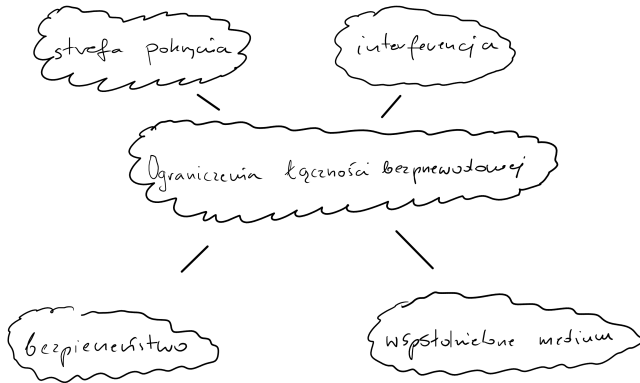 strefa pokrycia
interferencja
Ograniczenia łączności bezprzewodowej
bezpieczeństwo
współdzielone medium